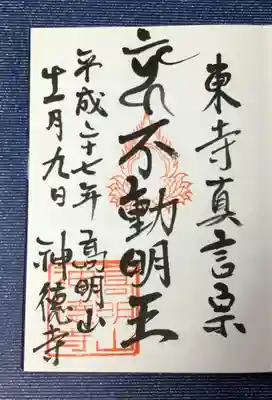 東寺真言宗
不動明王
平成二十七年 高明山
十一月九日 神德寺